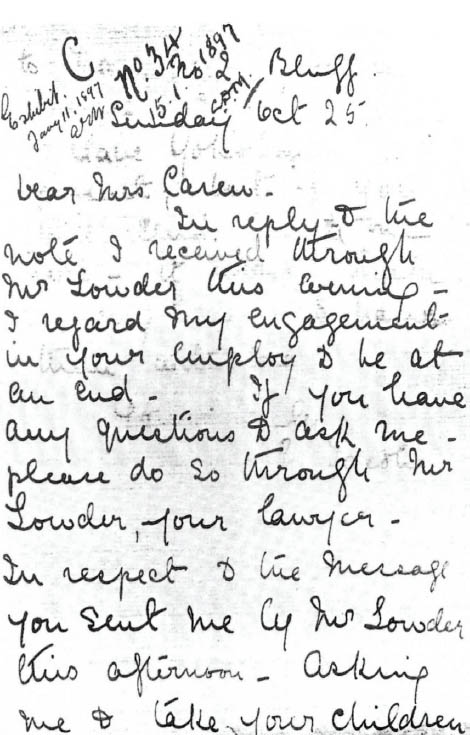 C
No. 34
1897
No 2
15.1.
Exhibit.
Jany 11. 1897
Bluff.
Sunday Oct 25.
Dear Mrs Carew -
In reply to the
note I received through
Mr Lowder this evening -
I regard my engagement
in your employ to be at
an end - If you have
any questions to ask me -
please do so through Mr
Lowder, your lawyer -
In respect to the message
you sent me by Mr Lowder
this afternoon - Asking
me to take your children